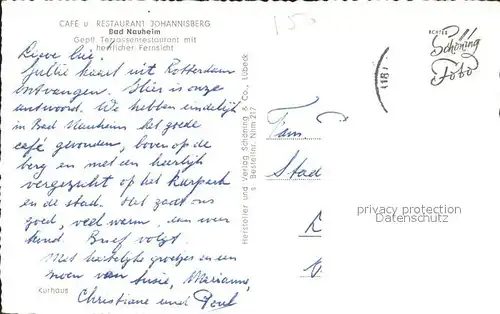 CAFÉ u. RESTAURANT JOHANNISBERG
Bad Nauheim
Gepfl. Terrassenrestaurant mit
herrlicher Fernsicht
150
Lieve
Jullie kaart uit Rotterdam
ontvangen. Hier is onze
antwoord. We hebben eindelijk
in Bad Nauheim het goede
café gevonden, boven op de
berg en met een heerlijk
vergezicht op het Kurpark
en de stad. Het gaat ons
goed, veel warm, een weer
Brief volgt.
Met hartelijke groetjes en een
zoen van Susie, Marianne,
Christiane und Paul
Kurhaus
Hersteller und Verlag Schöning & Co., Lübeck
s Bestellnr. Nhm 217
ECHTES
Schöning
Foto
(18)
Fam.
Stad
privacy protection
Datenschutz